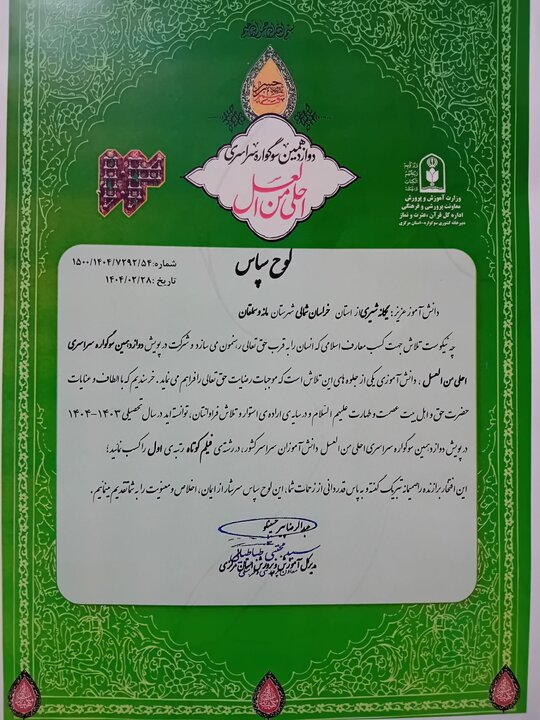 دوازدهمین سوگواره سراسری
احلی من العسل
وزارت آموزش و پرورش
معاونت پرورشی و فرهنگی
اداره کل قرآن، عترت و نماز
دبیرخانه کشوری سوگواره-استان مرکزی
لوح سپاس
شماره: ۱۵۰۰/۱۴۰۴/۷۲۹۲/۵۴
تاریخ: ۱۴۰۴/۰۲/۲۸
دانش آموز عزیز: یگانه شیری از استان خراسان شمالی شهرستان مانه و سملقان
چه نیکوست تلاش جهت کسب معارف اسلامی که انسان را به قرب حق تعالی رهنمون می سازد و شرکت در پویش دوازدهمین سوگواره سراسری
احلی من العسل، دانش آموزی یکی از جلوه های این تلاش است که موجبات رضایت حق تعالی را فراهم می نماید. خرسندیم که با الطاف و عنایات
حضرت حق و اهل بیت عصمت و طهارت علیهم السلام و در سایه ی اراده ی استوار و تلاش فراوانتان، توانسته اید در سال تحصیلی ۱۴۰۳-۱۴۰۴
در پویش دوازدهمین سوگواره سراسری احلی من العسل دانش آموزان سراسر کشور، در رشته ی فیلم کوتاه رتبه ی اول را کسب نمائید؛
این افتخار برازنده را صمیمانه تبریک گفته و به پاس قدردانی از زحمات شما، این لوح سپاس سرشار از ایمان، اخلاص و معنویت را به شما تقدیم می نمایم.
سید مجتبی طباطبائی
مدیرکل آموزش و پرورش استان مرکزی